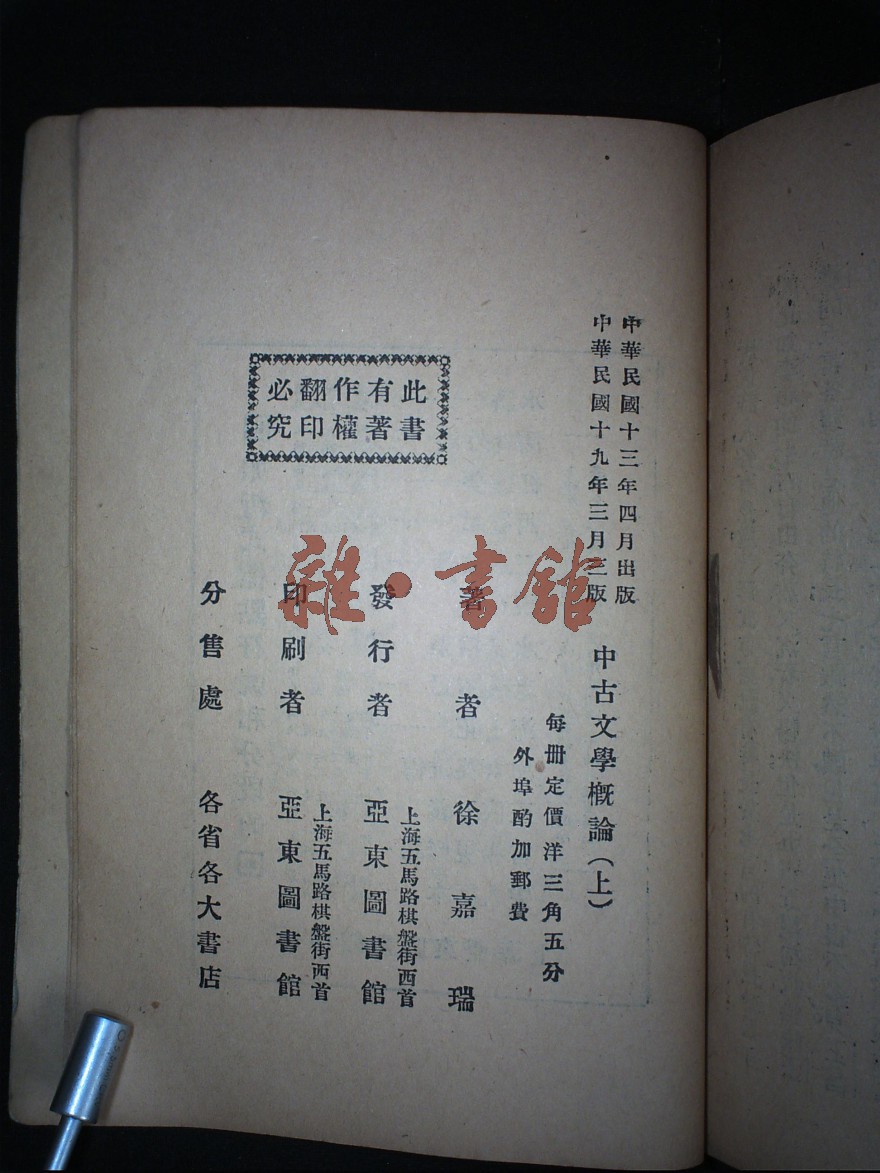 中華民國十三年四月出版
中華民國十九年三月三版
中古文學概論(上)
每册定價洋三角五分
外埠酌加郵費
著者 徐嘉瑞
發行者 亞東圖書館
上海五馬路棋盤街西首
印刷者 亞東圖書館
上海五馬路棋盤街西首
分售處 各省各大書店
此書
有著
作權
翻印
必究
雜·書館